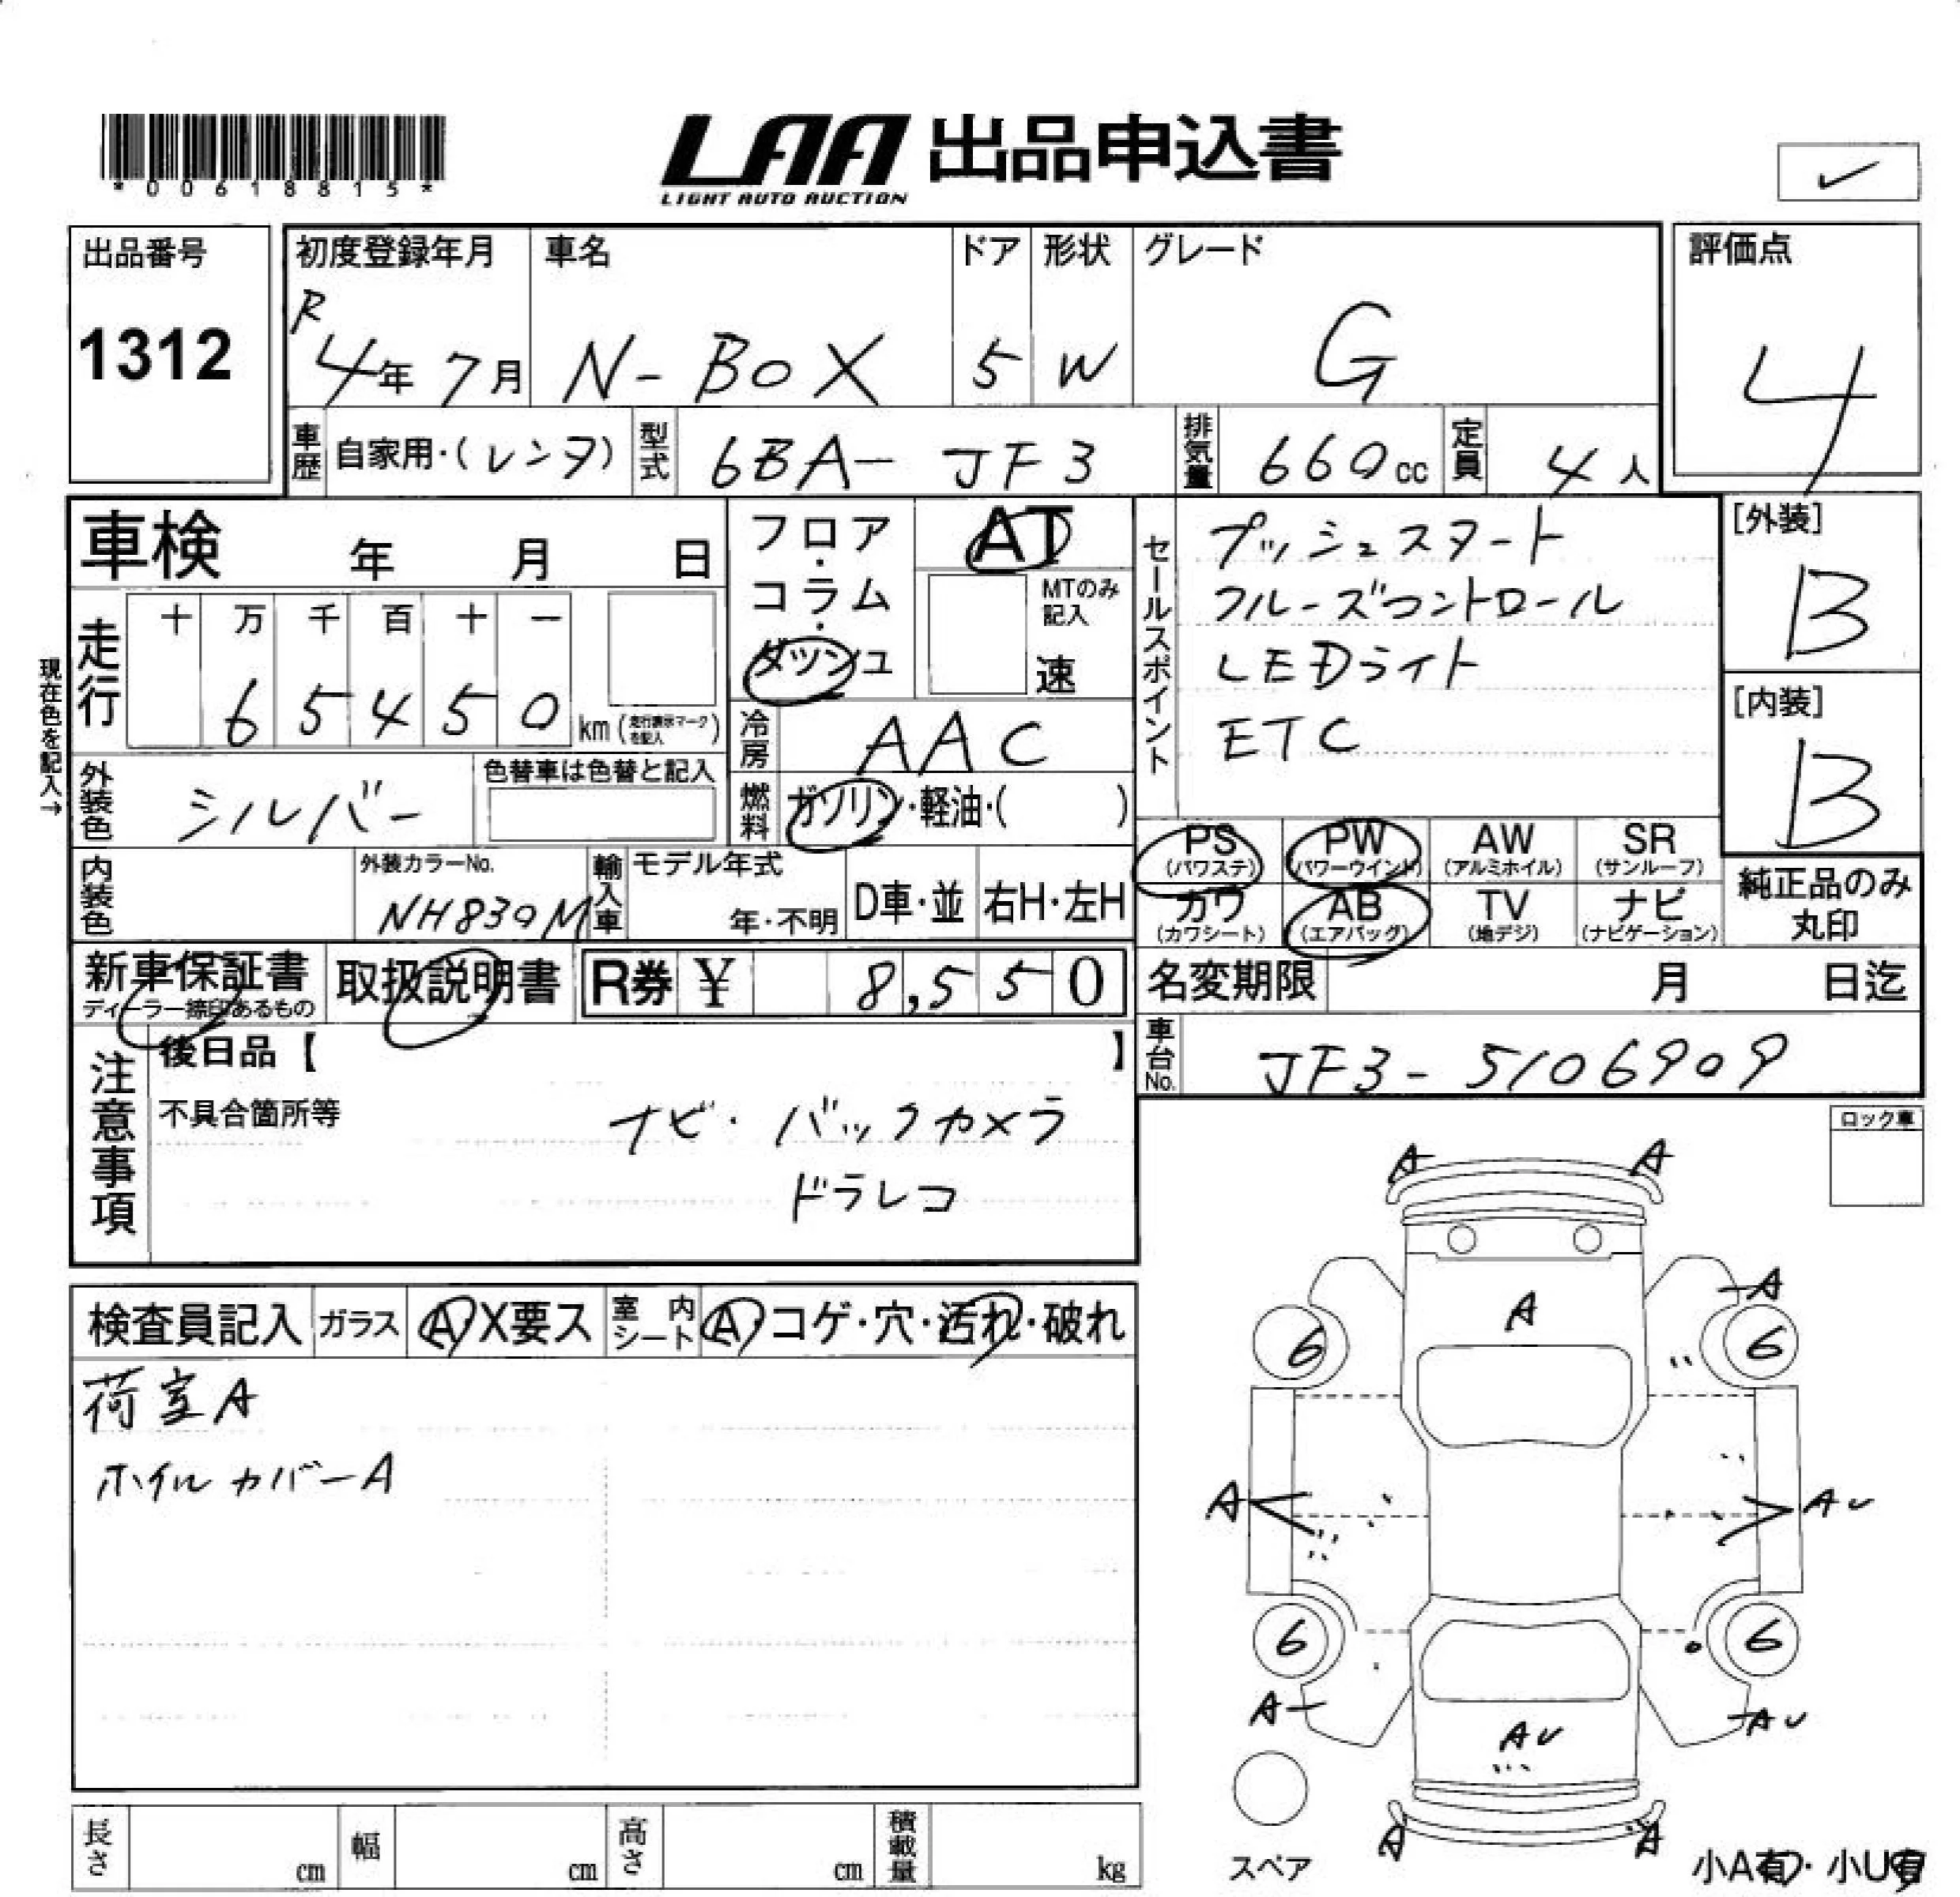 *00618815*
LAA 出品申込書
LIGHT AUTO AUCTION
出品番号
1312
初度登録年月
R 4年 7月
車名
N-BOX
ドア
5
形状
W
グレード
G
評価点
4
車歴 自家用・(レンタ)
型式 6BA-JF3
排気量 660cc
定員 4人
車検 年 月 日
現在色を記入→
走行
十 万 千 百 十 一
6 5 4 5 0 km (走行表示マークを記入)
フロア・コラム・ダッシュ
AT
MTのみ記入
速
冷房 AAC
燃料 ガソリン・軽油・( )
セールスポイント
プッシュスタート
クルーズコントロール
LEDライト
ETC
[外装]
B
[内装]
B
外装色 シルバー
色替車は色替と記入
内装色
外装カラーNo.
NH830M
輸入車
モデル年式
年・不明
D車・並
右H・左H
PS (パワステ)
PW (パワーウインド)
AW (アルミホイル)
SR (サンルーフ)
カワ (カワシート)
AB (エアバッグ)
TV (地デジ)
ナビ (ナビゲーション)
純正品のみ
丸印
新車保証書
ディーラー捺印あるもの
取扱説明書
R券 ¥ 8,550
名変期限 月 日迄
車台No. JF3-5106909
注意事項
後日品【 】
不具合箇所等
ナビ・バックカメラ
ドラレコ
ロック車
検査員記入
ガラス A X要ス
室内シート A コゲ・穴・汚れ・破れ
荷室A
ホイルカバーA
A A
A
A
6 6
A AU
6 6
A AU
AU
A A
スペア
小A有・小U有
長さ cm
幅 cm
高さ cm
積載量 kg